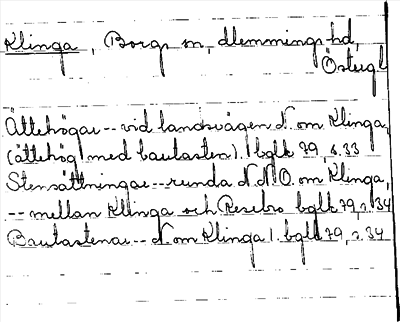 Klinga, Borgs sn, Memmings hd,
Östergl
Ättehögar -- vid landsvägen N. om Klinga,
(ättehög med bautasten). 1 bglt 79, s. 33
Stensättningar -- runda N.N.O. om Klinga,
-- mellan Klinga och Resebro bglt 79, s. 34
Bautastenar -- N. om Klinga 1. bglt 79, s. 34